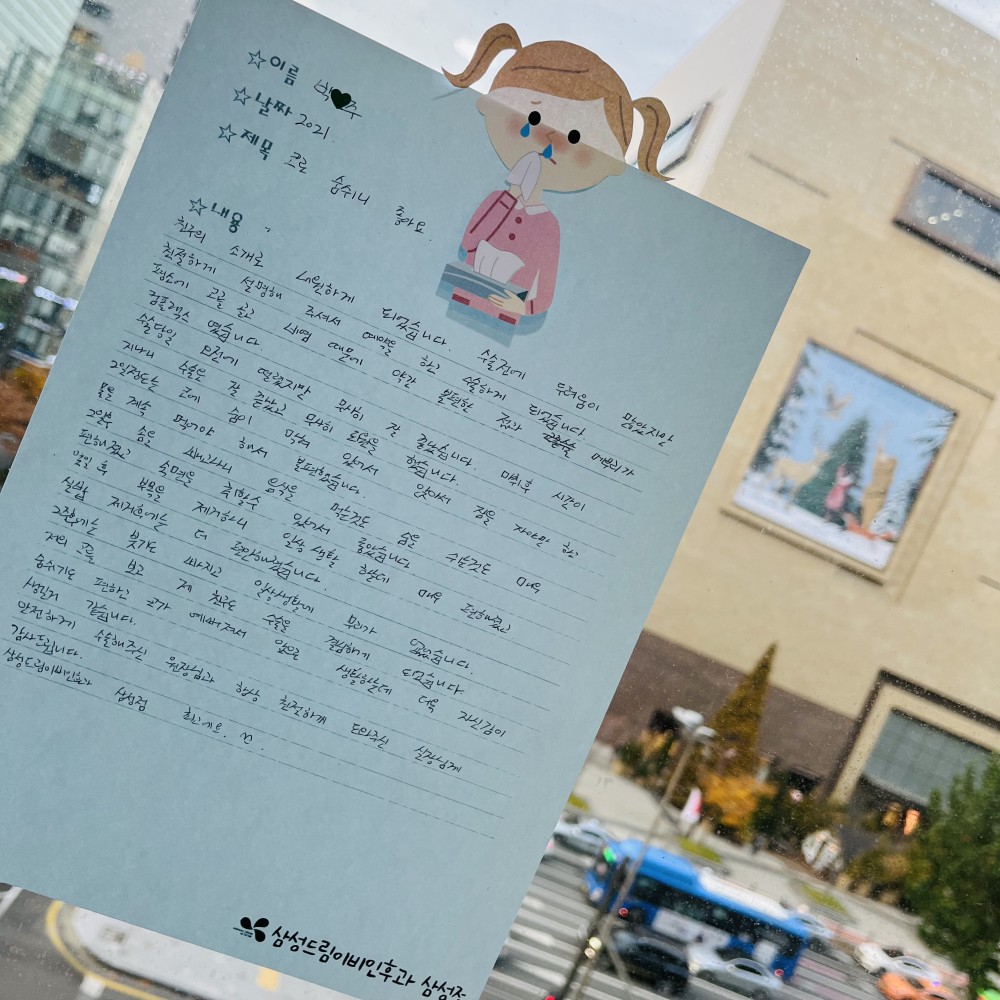 ☆이름 박♥주
☆날짜 2021.
☆제목 코로
숨쉬니 좋아요.
☆내용
친구의 소개로 내원하게 되었습니다. 수술전에 두려움이 많았지만
친절하게 설명해 주셔서 예약을 하고 수술하게 되었습니다.
평소에 코를 골고 비염 때문에 약간 불편한 점과 메부리가
컴플렉스 였습니다.
수술당일 오전에 떨렸지만 잘 마취후 시간이
지나니 수술은 잘 끝났고 무사히 퇴원을 했습니다.
2일정도는 코에 솜이 막혀 있어서 앉아서 잠을 자야만 하고
물을 계속 먹어야 해서 불편했습니다.
2일후 솜을 빼고나니 음식을 먹는것도 숨을 쉬는것도 매우
편해졌고 숙면을 취할수 있어서 좋았습니다
몇일 후 부목을 제거하니 일상 생활 하는데 매우 편해졌고
실밥 제거후에는 더 편안해졌습니다.
2주후에는 붓기도 빠지고 일상생활에 무리가 없었습니다.
저의 코를 보고 제 친구도 수술을 결심하게 되었습니다.
숨쉬기도 편하고 코가 예뻐져서 앞으로 생활하는데 더욱 자신감이
생길거 같습니다.
안전하게 수술해주신 원장님과 항상 친절하게 도와주신 실장님께
감사드립니다.
삼성드림이비인후과 삼성점 최고에요. ^^.
삼성드림이비인후과 삼성점